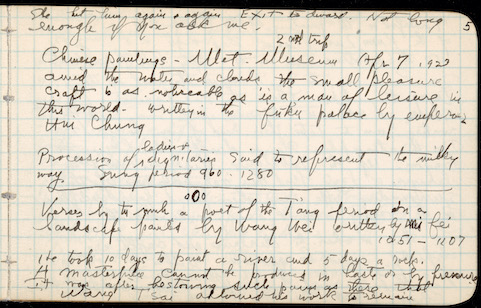 She hit him again & again Exit to dward. Not long
enough if you ask me. 5
2nd trip
Chinese paintings - Met. Museum Apr 7 1923
amid the water and clouds the small pleasure
craft is as noticeable as is a man of leisure in
this world. written in the palace by emperor
Hui Chung
ladies &
Procession of dignitaries said to represent the milky
way. Sung period 960 - 1280
Verses by Tu a poet of the Tang period on a
landscape painted by Wang Wei written by Mi fei
1051 - 1107
He took 10 days to paint a river and 5 days a rock.
A masterpiece cannot be produced in haste or by pressure
It was after bestowing such pains as these that
Wang Tsai allowed his work to remain